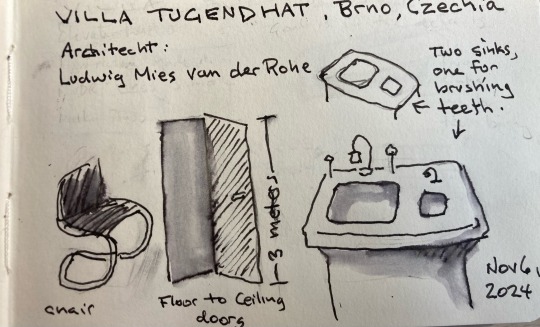 VILLA TUGENDHAT, Brno, Czechia
Architecht:
Ludwig Mies van der Rohe
Two sinks,
one for
brushing
teeth.
chair
Floor to Ceiling
doors
3 meters
2
Nov 6,
2024